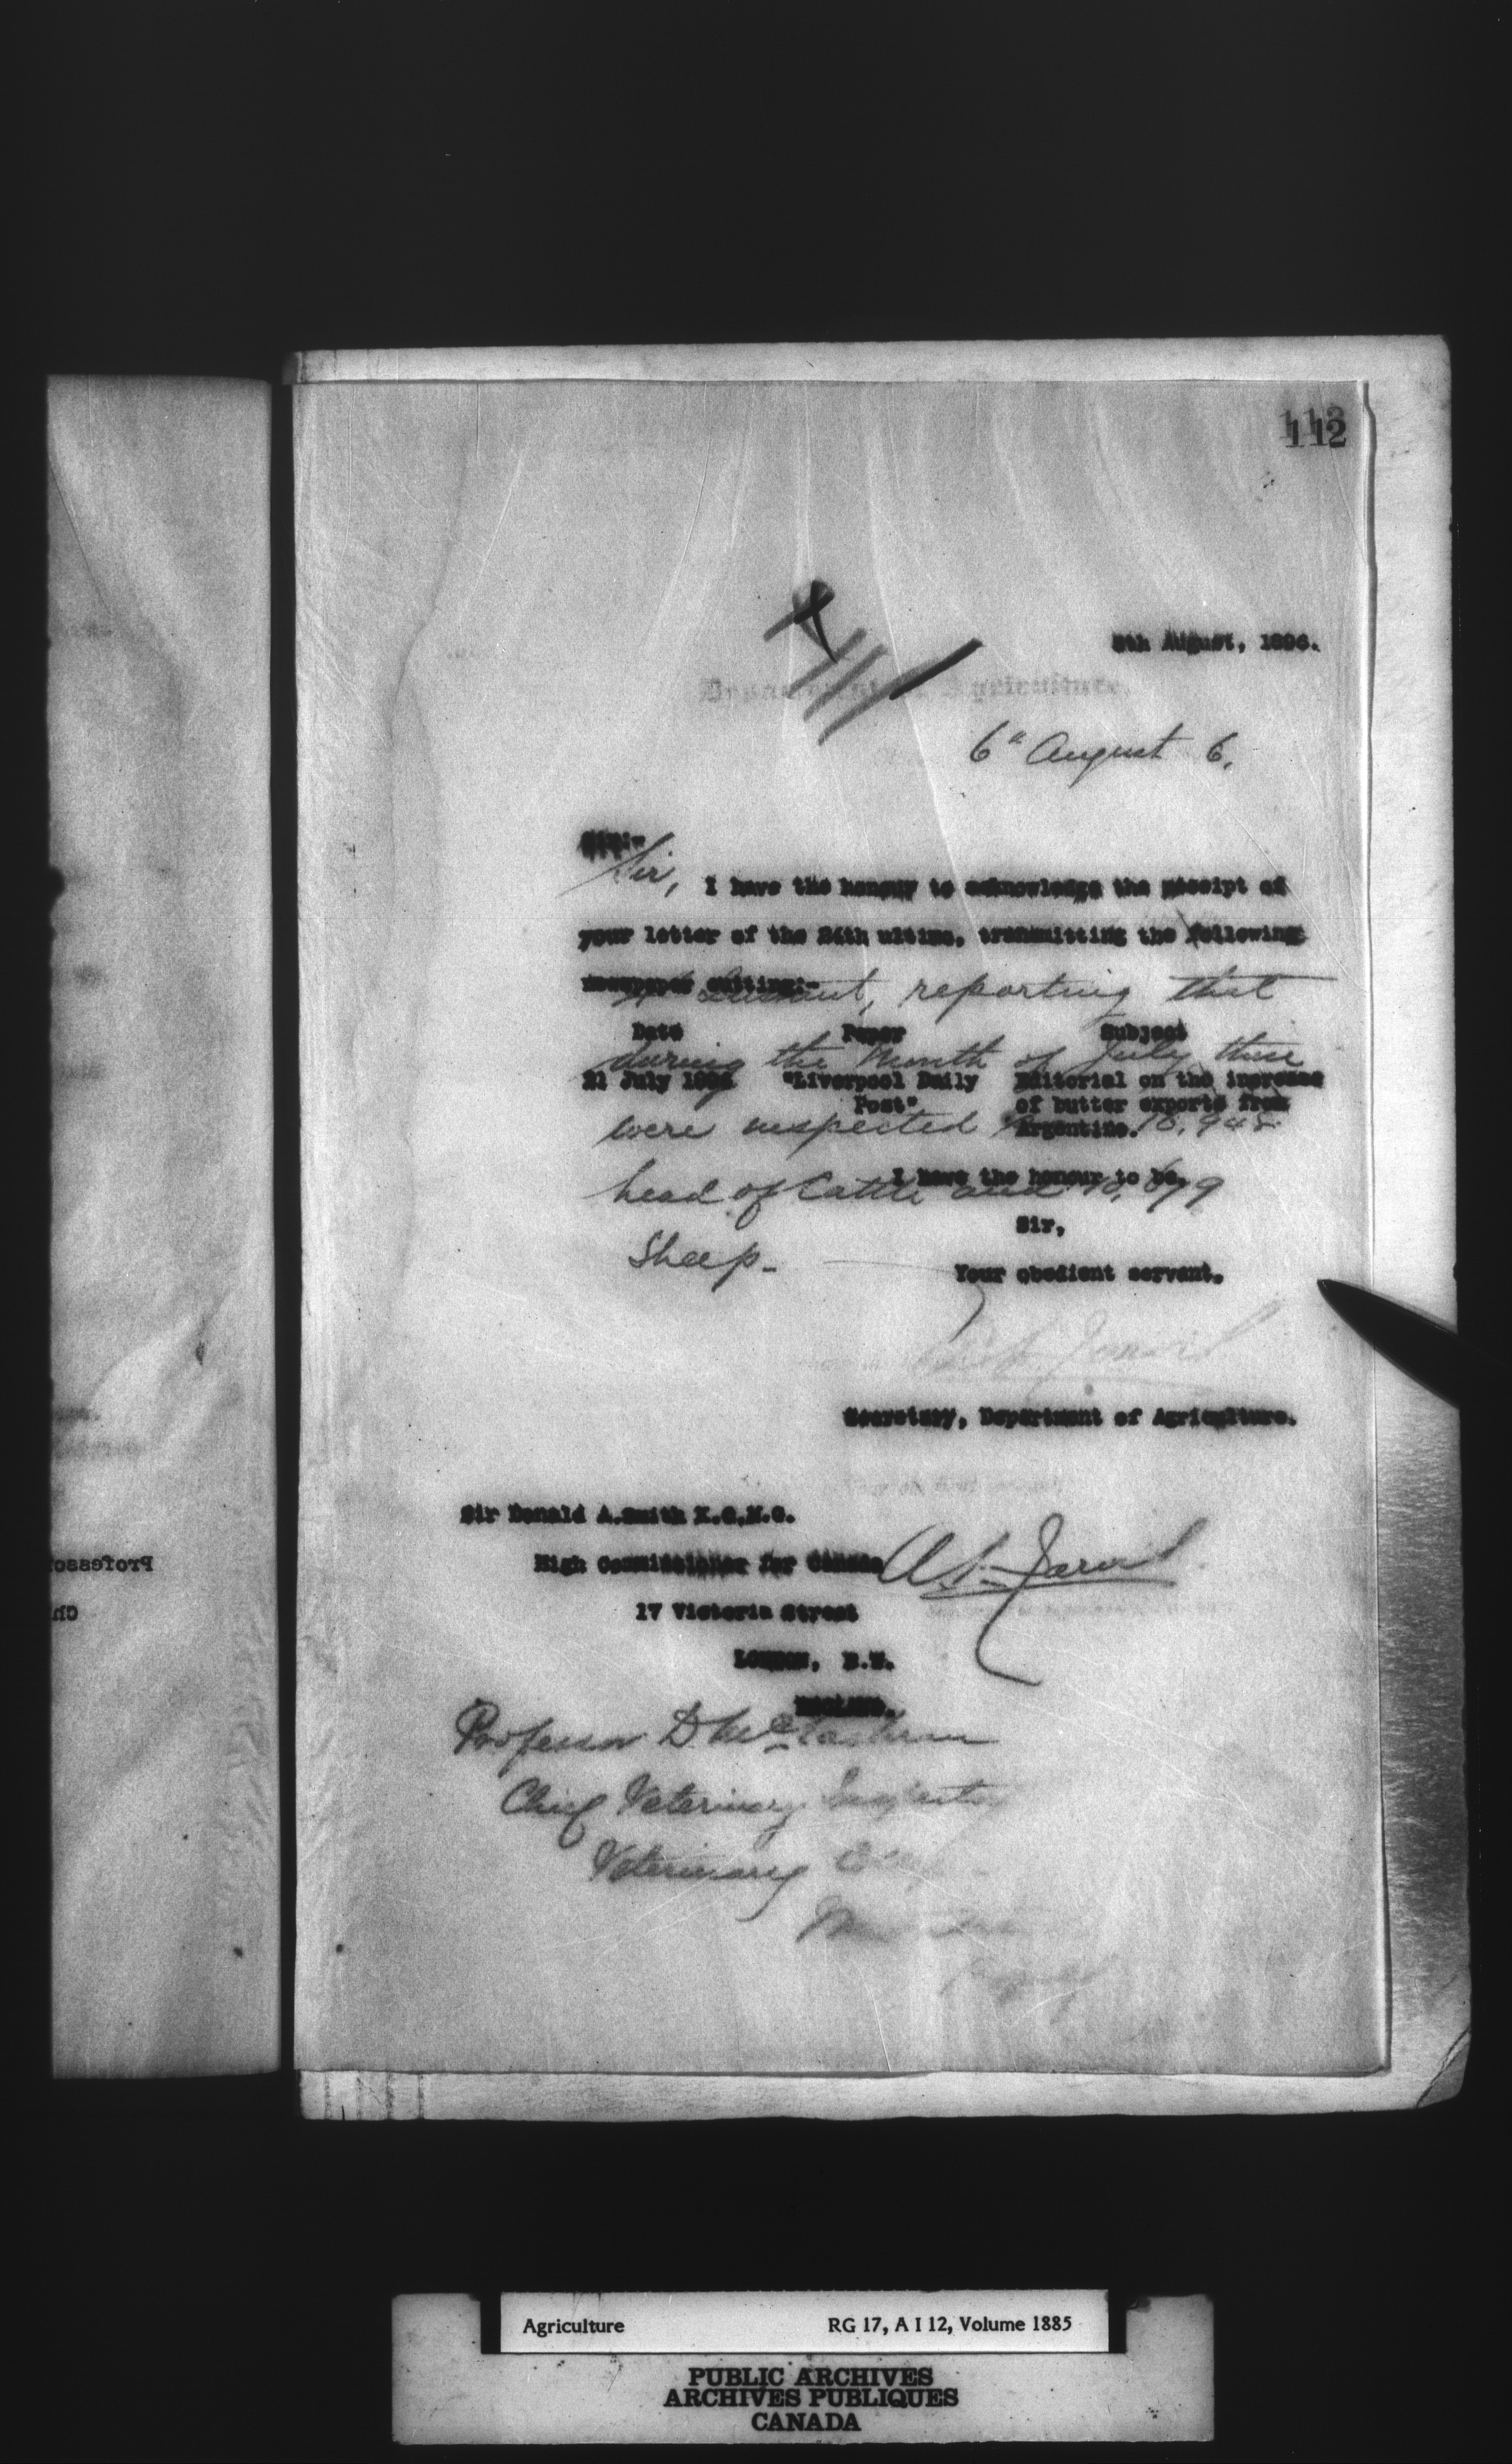 113
112
August, 1896.
Department of Agriculture.
6" August 6.
Sir:-
Sir,
I have the honour to acknowledge the receipt of
your letter of the 24th ultimo, transmitting the following
newspaper cutting:-
instant, reporting that
Date Paper Subject
during the Month of July there
21 July 1896 "Liverpool Daily Editorial on the increase
Post" of butter exports from
Argentine.
were inspected
I have the honour to be,
head of Cattle and
Sir,
Sheep.
Your obedient servant,
Secretary, Department of Agriculture.
Sir Donald A. Smith K.C.M.G.
High Commissioner for Canada
A L Jarvis
17 Victoria Street
LONDON, S.W.
ENGLAND.
Professor D McEachran
Chief Veterinary Inspector
Veterinary
Professo
Ch
Agriculture RG 17, A I 12, Volume 1885
PUBLIC ARCHIVES
ARCHIVES PUBLIQUES
CANADA